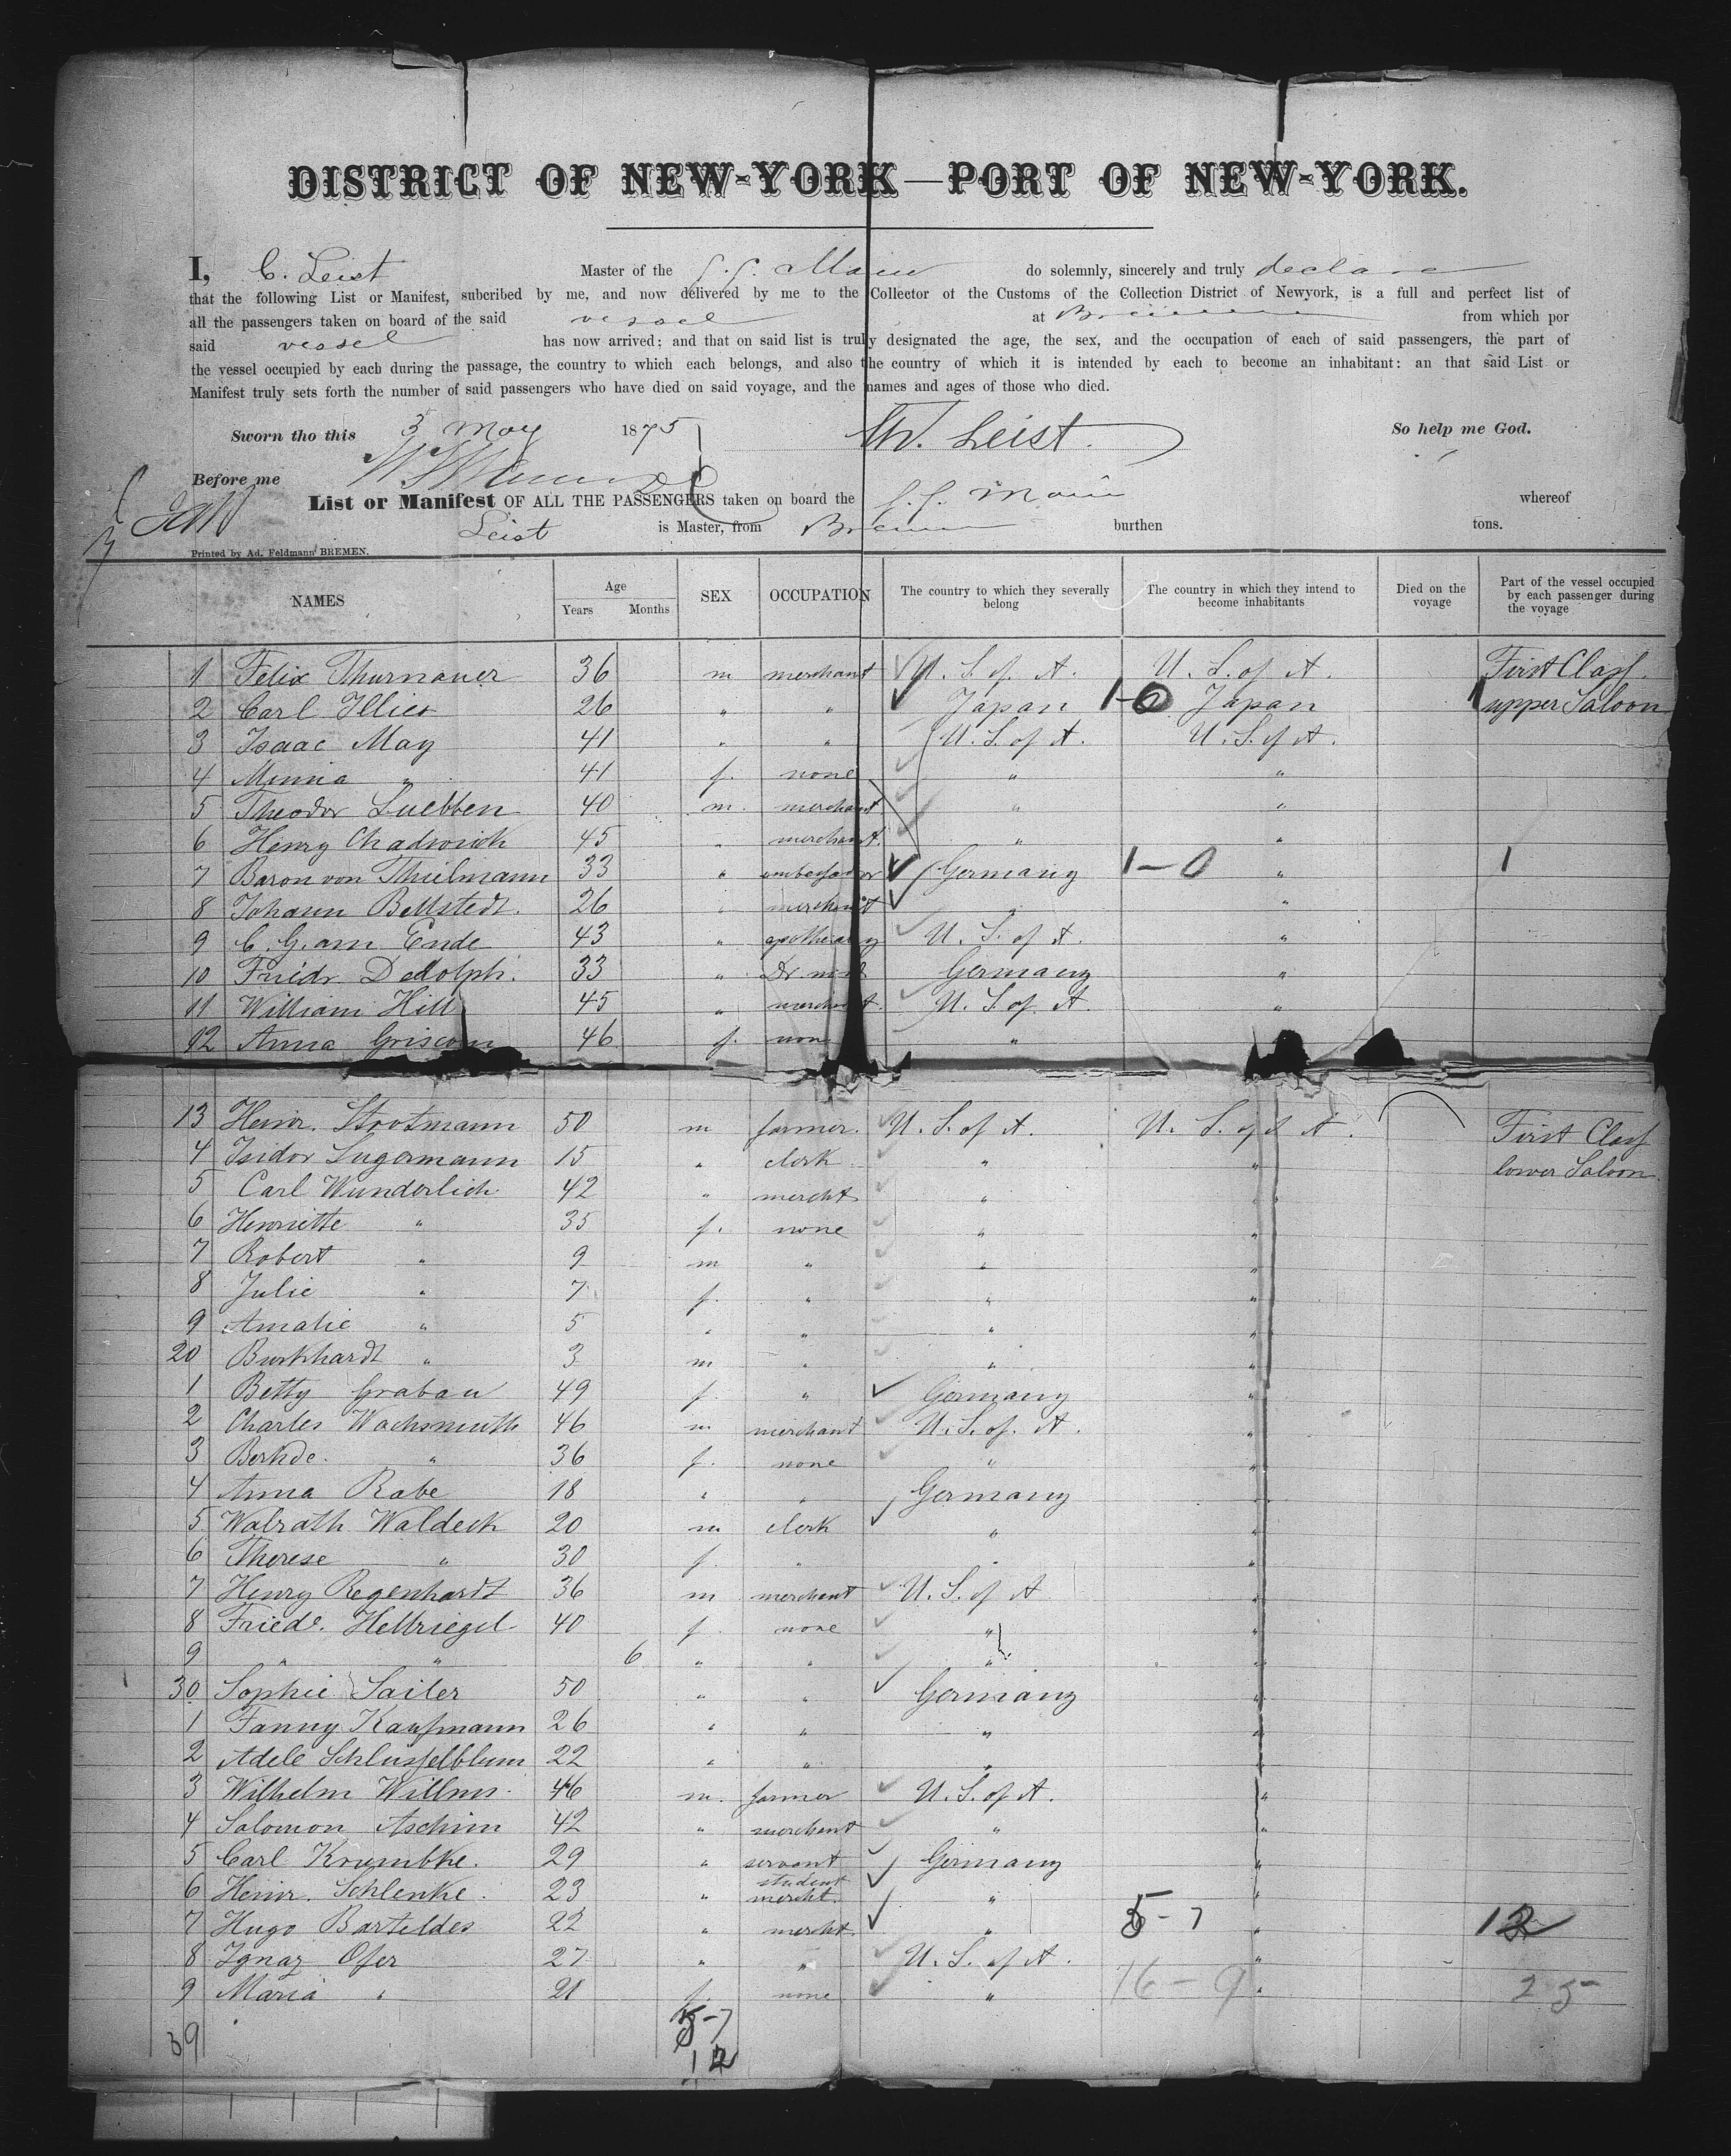 DISTRICT OF NEW-YORK—PORT OF NEW-YORK.
I, C. Leist Master of the S. S. Main do solemnly, sincerely and truly declare
that the following List or Manifest, subcribed by me, and now delivered by me to the Collector of the Customs of the Collection District of Newyork, is a full and perfect list of
all the passengers taken on board of the said vessel at Bremen from which por
said vessel has now arrived: and that on said list is truly designated the age, the sex, and the occupation of each of said passengers, the part of
the vessel occupied by each during the passage, the country to which each belongs, and also the country of which it is intended by each to become an inhabitant: an that said List or
Manifest truly sets forth the number of said passengers who have died on said voyage, and the names and ages of those who died.
Sworn tho this 5 May 1875 Leist. So help me God.
Before me
List or Manifest OF ALL THE PASSENGERS taken on board the S. S. Main whereof
Leist is Master, from Bremen burthen tons.
Printed by Ad. Feldmann BREMEN.
NAMES Age Years Months SEX OCCUPATION The country to which they severally belong The country in which they intend to become inhabitants Died on the voyage Part of the vessel occupied by each passenger during the voyage
1 Felix Thurnauer 36 m merchant U. S. of A. U. S. of A. First Class.
2 Carl Illies 26 " " Japan 1-0 Japan 1 upper Saloon
3 Isaac May 41 " " U. S. of A. U. S. of A.
4 Minna " 41 f. none " "
5 Theodor Luebben 40 m. merchant " "
6 Henry Chadwick 45 " merchant. " "
7 Baron von Thielmann 33 " ambassador Germany 1-0 " 1
8 Johann Bellstedt. 26 " merchant "
9 C. G. am Ende 43 " apothecary U. S. of A. "
10 Friedr. Dedolph. 33 " Dr. med Germany "
11 William Hill 45 " merchant. U. S. of A. "
12 Anna Griscom 46 f. none "
13 Heinr. Strotmann 50 m farmer. U. S. of A. U. S. of A. First Class
4 Isidor Sugermann 15 " clerk " " lower Saloon.
5 Carl Wunderlich 42 " mercht " "
6 Henriette " 35 f. none " "
7 Robert " 9 m " " "
8 Julie " 7 f. " " "
9 Amalie " 5 " " " "
20 Burkhardt " 3 m " " "
1 Betty Grabau 49 f. " Germany "
2 Charles Wachsmuth 46 m merchant U. S. of. A. "
3 " 36 f. none " "
4 Anna Rabe 18 " " Germany "
5 Walrath Waldeck 20 m clerk " "
6 Therese " 30 f. " " "
7 Henry Regenhardt 36 m merchant U. S. of A "
8 Friede. Hellriegel 40 f none " "
9 " " 6 " " " "
30 Sophie Sailer 50 " " Germany "
1 Fanny Kaufmann 26 " " " "
2 Adele Schlusselblum 22 " " " "
3 Wilhelm Willms. 46 m. farmer U. S. of A. "
4 Salomon Aschim 42 " merchant " "
5 Carl Krumbke. 29 " servant Germany "
6 Heinr. Schlenke. 23 " student mercht. " "
7 Hugo Barteldes 22 " mercht. " 5-7 " 12
8 Ignaz Ofer 27 " " U. S. of A. "
9 Maria " 21 f. none " 16-9 " 25
39 5-7
12